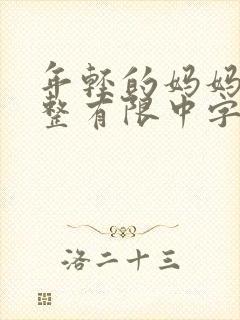 年轻的妈妈
整有限中字
洛二十三